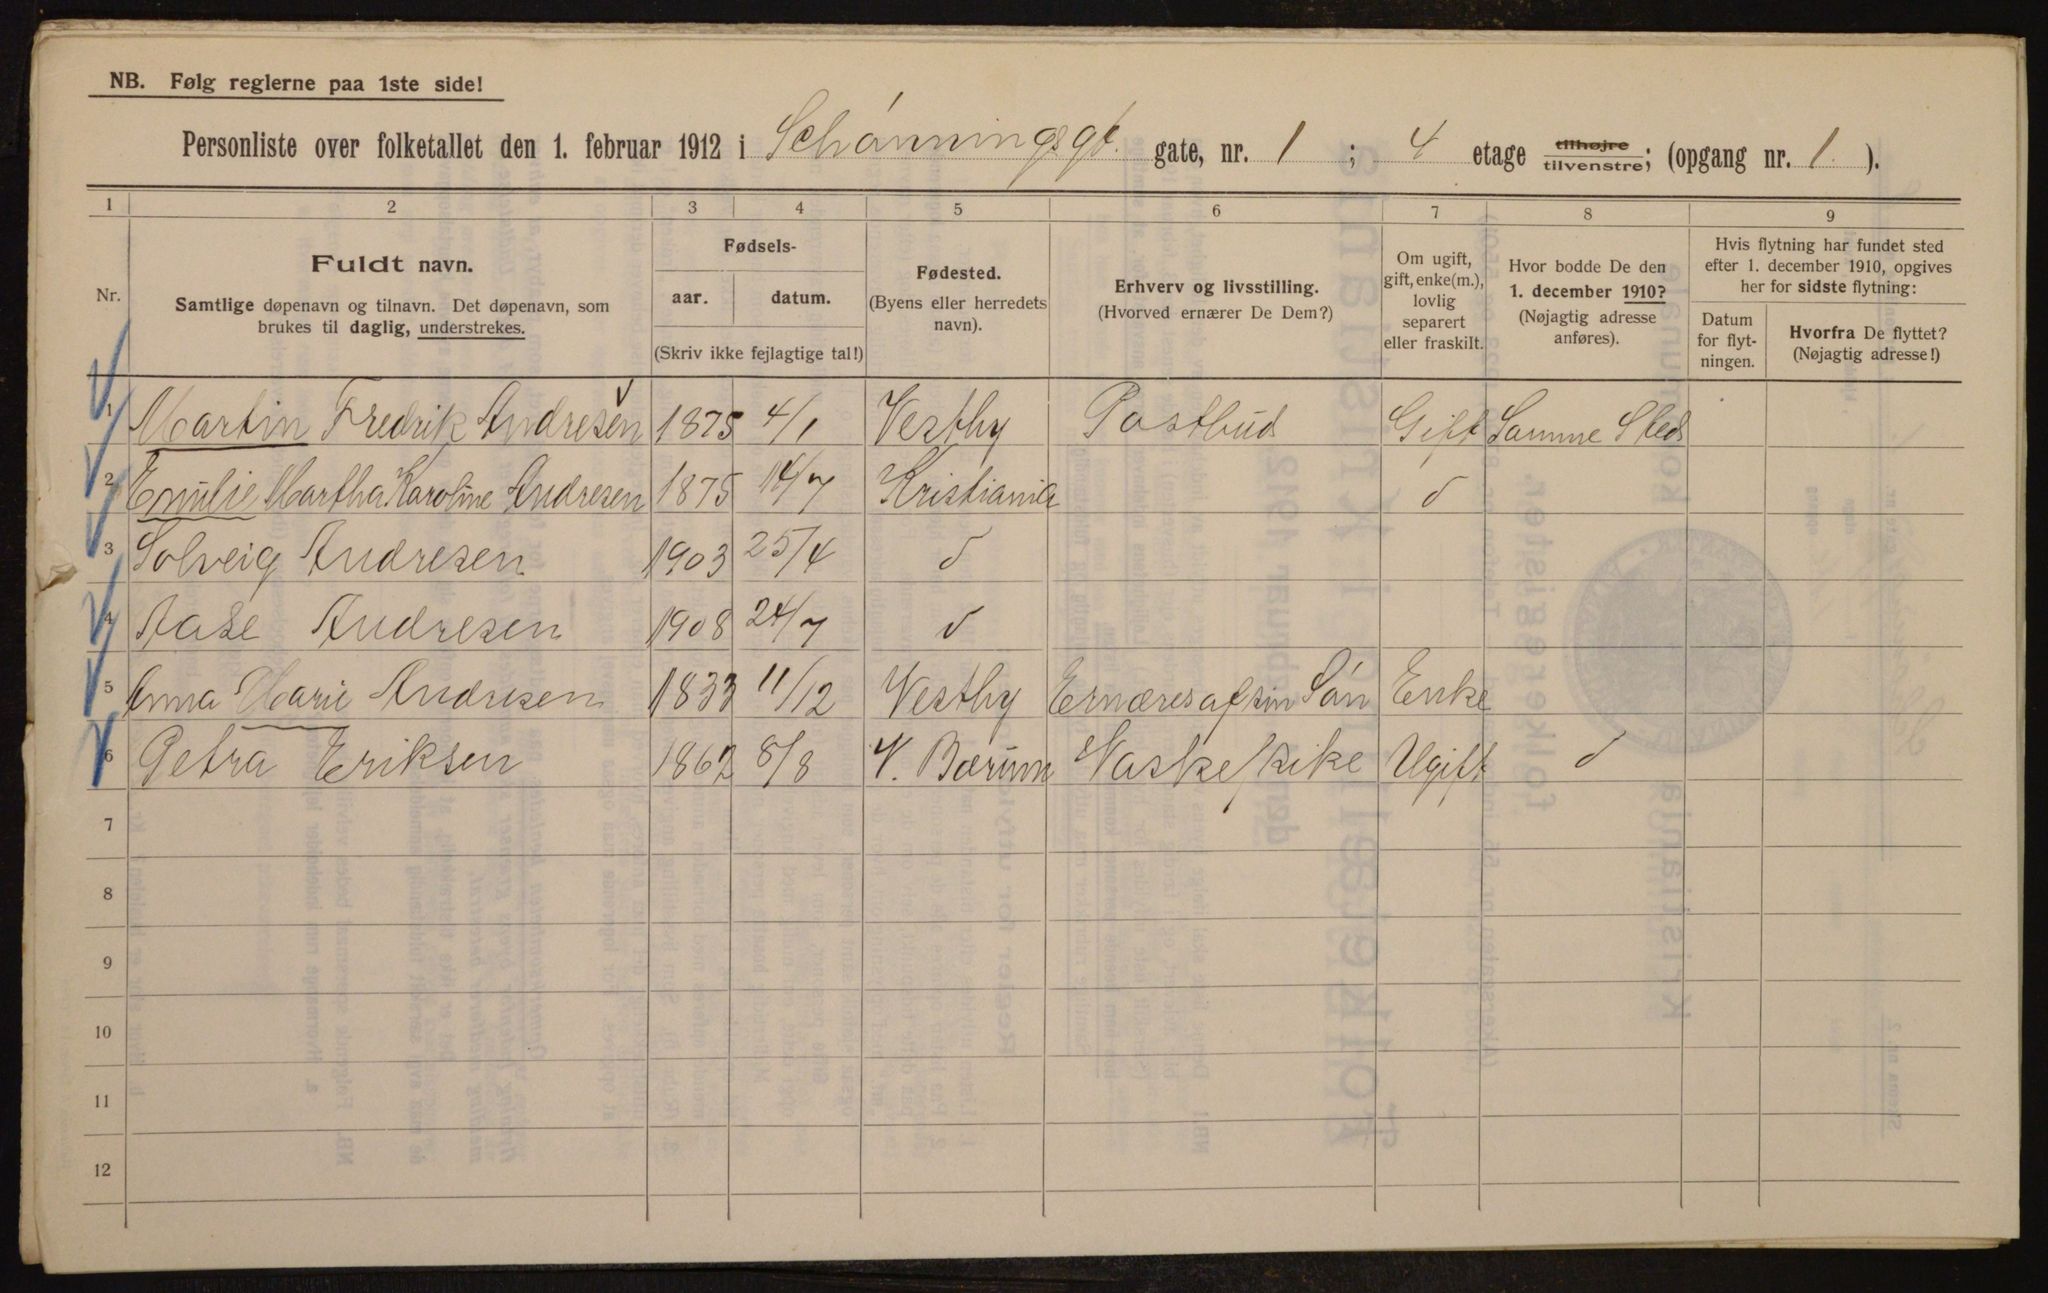 NB. Følg reglerne paa 1ste side!
Personliste over folketallet den 1. februar 1912 i Schønningsgt. gate, nr. 1 ; 4 etage tilhøjre tilvenstre; (opgang nr. 1 ).
1 2 3 4 5 6 7 8 9
Nr.
Fuldt navn.
Samtlige døpenavn og tilnavn. Det døpenavn, som
brukes til daglig, understrekes.
Fødsels-
aar. datum.
(Skriv ikke fejlagtige tal!)
Fødested.
(Byens eller herredets
navn).
Erhverv og livsstilling.
(Hvorved ernærer De Dem?)
Om ugift,
gift, enke(m.),
lovlig
separert
eller fraskilt.
Hvor bodde De den
1. december 1910?
(Nøjagtig adresse
anføres).
Hvis flytning har fundet sted
efter 1. december 1910, opgives
her for sidste flytning:
Datum
for flyt-
ningen.
Hvorfra De flyttet?
(Nøjagtig adresse!)
1 Martin Fredrik Andresen 1875 4/1 Vestby Postbud Gift Samme Sted
2 Emilie Martha Karoline Andresen 1875 14/7 Kristiania d
3 Solveig Andresen 1903 25/4 d
4 Aase Andresen 1908 24/7 d
5 Anna Marie Andresen 1833 11/12 Vestby Ernæres af sin Søn Enke
6 Petra Eriksen 1862 8/8 V. Bærum Vaskepike Ugift d
7
8
9
10
11
12